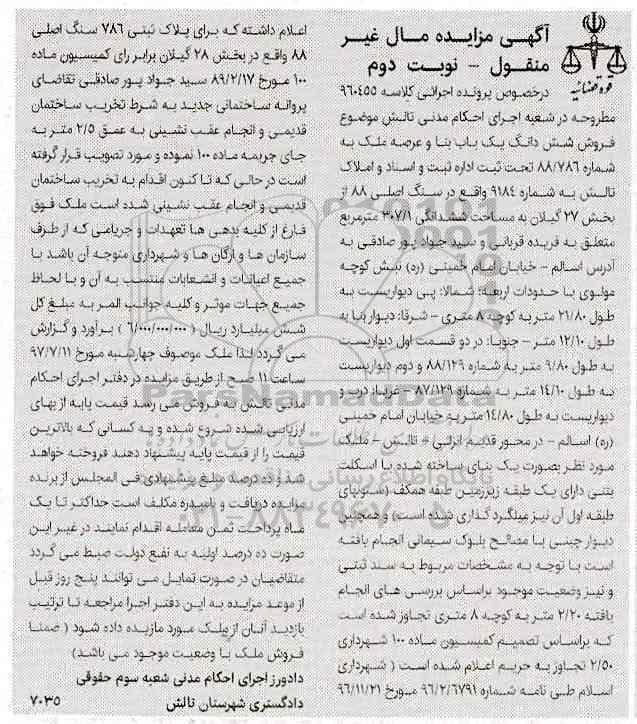 آگهی مزایده مال غیر
منقول - نوبت دوم
قوه قضائیه
درخصوص پرونده اجرائی کلاسه ۹۶۰۴۵۵
مطروحه در شعبه اجرای احکام مدنی تالش موضوع
فروش شش دانگ یک باب بنا و عرصه ملک به
شماره ۸۸/۷۸۶ تحت ثبت اداره ثبت و اسناد و املاک
تالش به شماره ۹۱۸۴ واقع در سنگ اصلی ۸۸ از
بخش ۲۷ گیلان به مساحت ششدانگی ۳۰۷/۱ مترمربع
متعلق به فریده قربانی و سید جواد پور صادقی به
آدرس اسالم - خیابان امام خمینی (ره) نبش کوچه
مولوی با حدودات اربعه: شمالا: پی دیواریست به
طول ۲۱/۸۰ متر به کوچه ۸ متری - شرقا: دیوار بنا به
طول ۱۲/۱۰ متر - جنوبا: در دو قسمت اول دیواریست
به طول ۹/۸۰ متر به شماره ۸۸/۱۲۹ و دوم دیواریست
به طول ۱۴/۶۰ متر به شماره ۸۷/۱۲۹ - غربا: درب و
دیواریست به طول ۱۴/۸۰ متر به خیابان امام خمینی
(ره) اسالم - در محور قدیم انزلی # تالش - ملک
مورد نظر بصورت یک بنای ساخته شده با اسکلت
بتنی دارای یک طبقه زیرزمین طبقه همکف (ستونهای
طبقه اول آن نیز میلگرد گذاری شده است) و همچنین
دیوار چینی با مصالح بلوک سیمانی انجام یافته
است با توجه به مشخصات مربوط به سند ثبتی
و نیز وضعیت موجود براساس بررسی های انجام
یافته ۲/۲۰ متر به کوچه ۸ متری تجاوز شده است
که براساس تصمیم کمیسیون ماده ۱۰۰ شهرداری
۲/۵۰ تجاوز به حریم اعلام شده است ( شهرداری
اسلام طی نامه شماره ۹۶/۲/۶۷۹۱ مورخ ۹۶/۱۱/۲۱
اعلام داشته که برای پلاک ثبتی ۷۸۶ سنگ اصلی
۸۸ واقع در بخش ۲۸ گیلان برابر رای کمیسیون ماده
۱۰۰ مورخ ۸۹/۲/۱۷ سید جواد پور صادقی تقاضای
پروانه ساختمانی جدید به شرط تخریب ساختمان
قدیمی و انجام عقب نشینی به عمق ۲/۵ متر به
جای جریمه ماده ۱۰۰ نموده و مورد تصویب قرار گرفته
است در حالی که تا کنون اقدام به تخریب ساختمان
قدیمی و انجام عقب نشینی شده است ملک فوق
فارغ از کلیه بدهی ها تعهدات و جرایمی که از طرف
سازمان ها و ارگان ها و شهرداری متوجه آن باشد با
جمیع اعیانات و انشعابات منتسب به آن و با لحاظ
جمیع جهات موثر و کلیه جوانب المر به مبلغ کل
شش میلیارد ریال ( ۶/۰۰۰/۰۰۰/۰۰۰ ) برآورد و گزارش
می گردد لذا ملک موصوف چهارشنبه مورخ ۹۷/۷/۱۱
ساعت ۱۱ صبح از طریق مزایده در دفتر اجرای احکام
مدنی تالش به فروش می رسد قیمت پایه از بهای
ارزیابی شده شروع شده و به کسانی که بالاترین
قیمت را از قیمت پایه پیشنهاد دهند فروخته خواهد
شد و ده درصد مبلغ پیشنهادی فی المجلس از برنده
مزایده دریافت و نامبرده مکلف است حداکثر تا یک
ماه پرداخت ثمن معامله اقدام نمایند در غیر این
صورت ده درصد اولیه به نفع دولت ضبط می گردد
متقاضیان در صورت تمایل می توانند پنج روز قبل
از موعد مزایده به این دفتر اجرا مراجعه تا ترتیب
بازدید آنان از ملک مورد مازیده داده شود ( ضمنا
فروش ملک با وضعیت موجود می باشد)
دادورز اجرای احکام مدنی شعبه سوم حقوقی
دادگستری شهرستان تالش
۷۰۳۵
ParsNamadData
پایگاه اطلاع رسانی